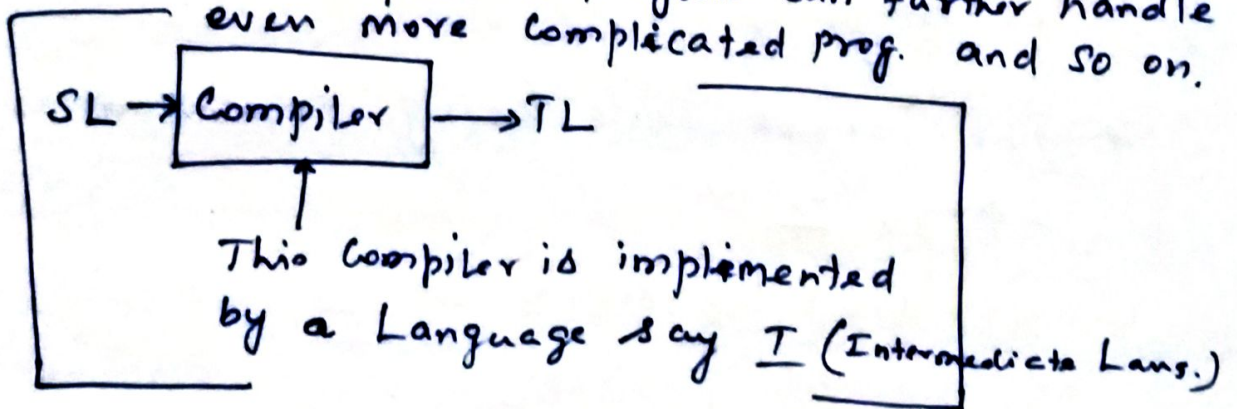 can further handle
even more complicated prog. and so on.
SL → Compiler → TL
This Compiler is implimented
by a Language say I (Intermediate Lang.)